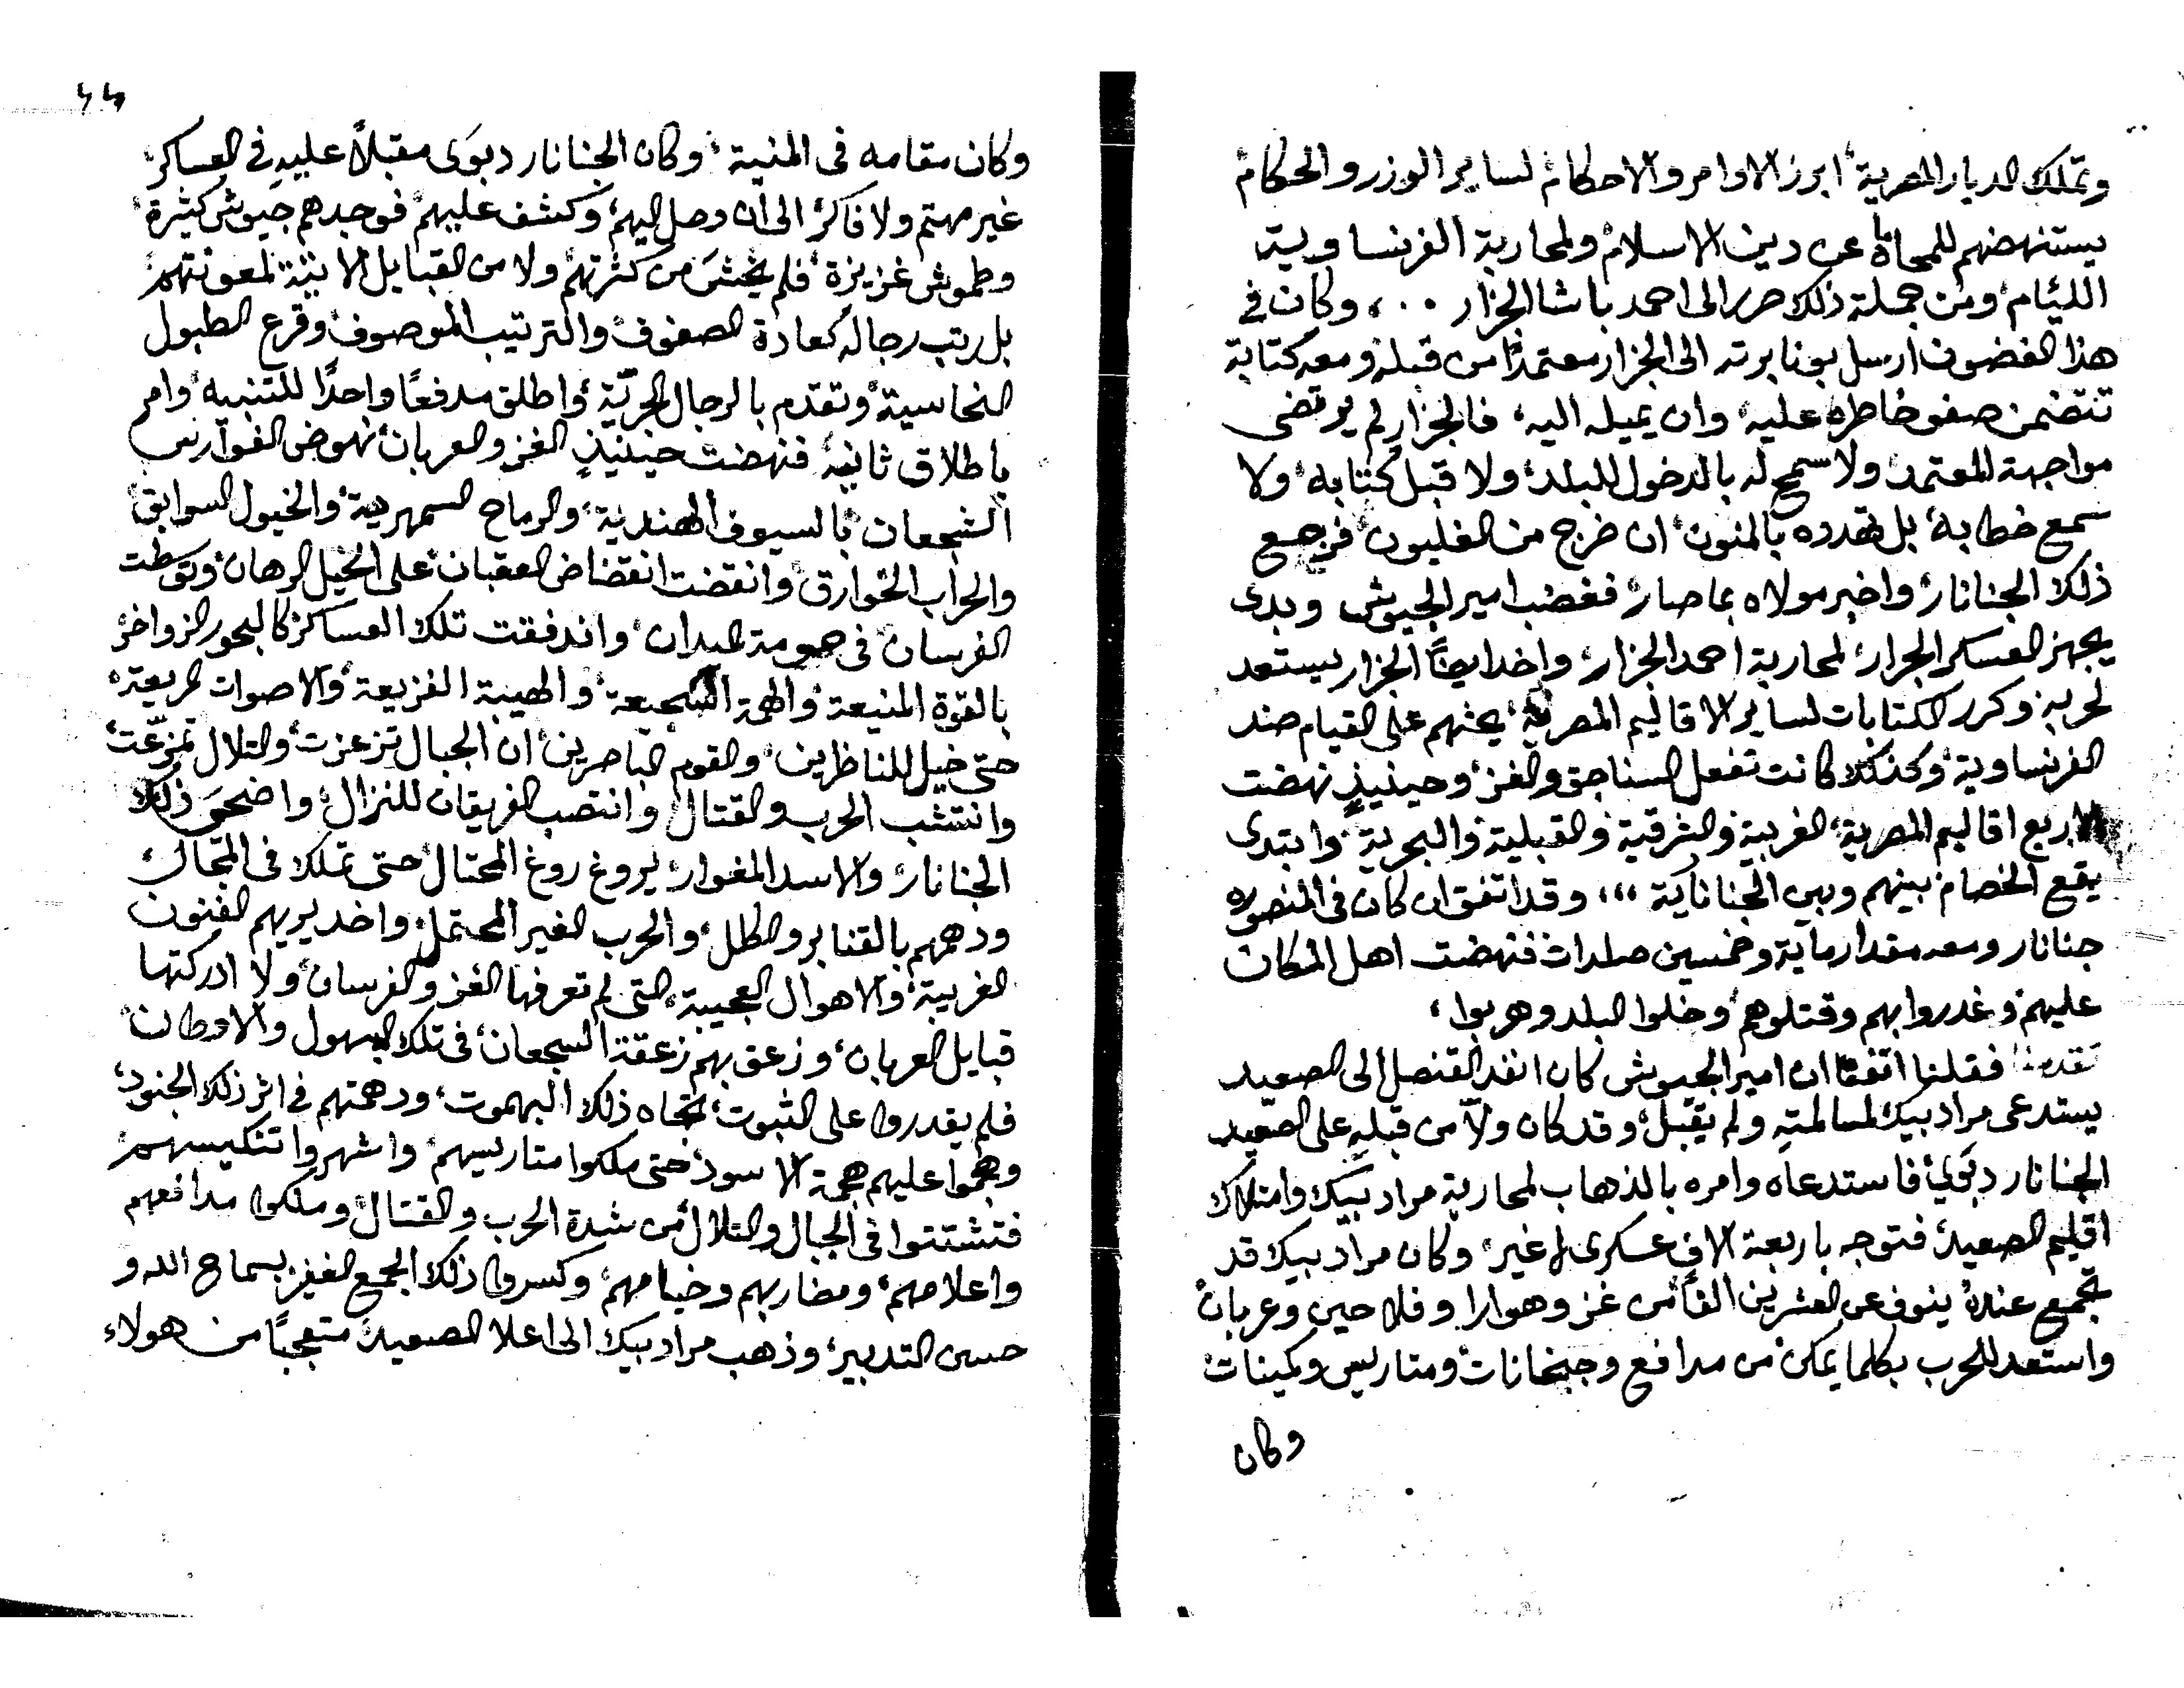 وتملك الديار المصرية، ابرز الاوامر والاحكام لساير الوزر والحكام
يستنهضهم للمحاماة عن دين الاسلام ولمحاربة الفرنساوية
الليئام ومن جملة ذلك حرر الى احمد باشا الجزار ..، وكان في
هذا الغضون ارسل بونابرته الى الجزار معتمدًا من قبله ومعه كتابة
تتضمن صفو خاطره عليه، وان يميله اليه، فالجزار لم يرتضى
مواجهة المعتمد ولا سمح له بالدخول للبلد، ولا قبل كتابه، ولا
سمع خطابه، بل تهدده بالمنون، ان خرج من الغليون، فرجع
ذلك الجنانار، واخبر مولاه بما صار، فغضب امير الجيوش وبدى
يجهز العسكر الجرار، لمحاربة احمد الجزار، واخد ايضًا الجزار يستعد
لحربه، وكرر الكتابات لساير الاقاليم المصرية، يحثهم على القيام ضد
الفرنساوية، وكذلك كانت تفعل السناجق والغز، وحينيذٍ نهضت
الاربع اقاليم المصرية، الغربية والشرقية والقبلية والبحرية وابتدى
يقع الخصام بينهم وبين الجناناكية ،،، وقد اتفق ان كان في المنصوره
جنانار ومعه مقدار ماية وخمسين صلدات، فنهضت اهل المكان
عليهم، وغدروا بهم وقتلوهم، وخلوا البلد وهربوا،
فقلنا انفًا ان امير الجيوش كان انفد القنصل الى الصعيد
يستدعى مراد بيك لمسالمته ولم يقبل، وقد كان ولّا من قبله على الصعيد
الجنانار دبوى، فاستدعاه وامره بالذهاب لمحاربة مراد بيك وامتلاك
اقليم الصعيد، فتوجه باربعة الاف عسكرى لا غير، وكان مراد بيك قد
تجمع عنده ينوف عن العشرين الفًا من غز وهوارا وفلاحين وعربان
واستعد للحرب بكلما يمكن من مدافع وجبخانات ومتاريس وكمينات
وكان
٤٤
وكان مقامه فى المنية، وكان الجنانار دبوَى مقبلاً عليه في العساكر،
غير مهتم ولا فاكر، الى ان وصل اليهم، وكشف عليهم، فوجدهم جيوش كثيرة،
وطموش غزيزة، فلم يخشَ من كثرتهم، ولا من القبايل الاتية لمعونتهم
بل رتب رجاله كعادة الصفوف، والترتيب الموصوف، وقرع الطبول
النحاسية، وتقدم بالرجال الحربّية، واطلق مدفعًا واحدًا للتنبيه، وامر
باطلاق ثانيه، فنهضت حينيذٍ الغز والعربان، نهوض الفوارس
الشجعان، بالسيوف الهندية، والرماح السمهرية، والخيول السوابق،
والحراب الخوارق، وانقضت انقضاض العقبان، على الخيل الرهان، وتوسّطت
الفرسان، فى حومة الميدان، واندفقت تلك العساكر، كالبحور الزواخر،
بالقوة المنيعة، والهمة السجيعة، والهيبة الفزيعة، والاصوات المريعة،
حتى خيل للناظرين، والقوم الباصرين، ان الجبال تزعزت، والتلال تمزّعت،
وانتشب الحرب والقتال، وانتصب الفريقان للنزال، واضحىَ ذلك
الجنانار، والاسد المغوار، يروغ روغ المحتال، حتى تملك فى المجال،
ودهمهم بالقنابر والكلل، والحرب الغير المحتمل، واخد يريهم الفنون
الغريبة، والاهوال العجيبة، التى لم تعرفها الغز والفرسان، ولا ادركتها
قبايل العربان، وزعق بهم زعقة السجعان، فى تلك السهول والاوطان،
فلم يقدروا على الثبوت، تجاه ذلك البهموت، ودهمتهم في اثر ذلك الجنود،
وهجموا عليهم هجمة الاسود، حتى ملكوا متاريسهم، واشهروا تنكيسهم،
فتشتتوا فى الجبال والتلال، من شدة الحرب والقتال، وملكوا مدافعهم
واعلامهم، ومضاربهم وخيامهم، وكسروا ذلك الجمع الغفير، بسماح الله و
حسن التدبير، وذهب مراد بيك الى اعلا الصعيد، متعجبًا من هولاء